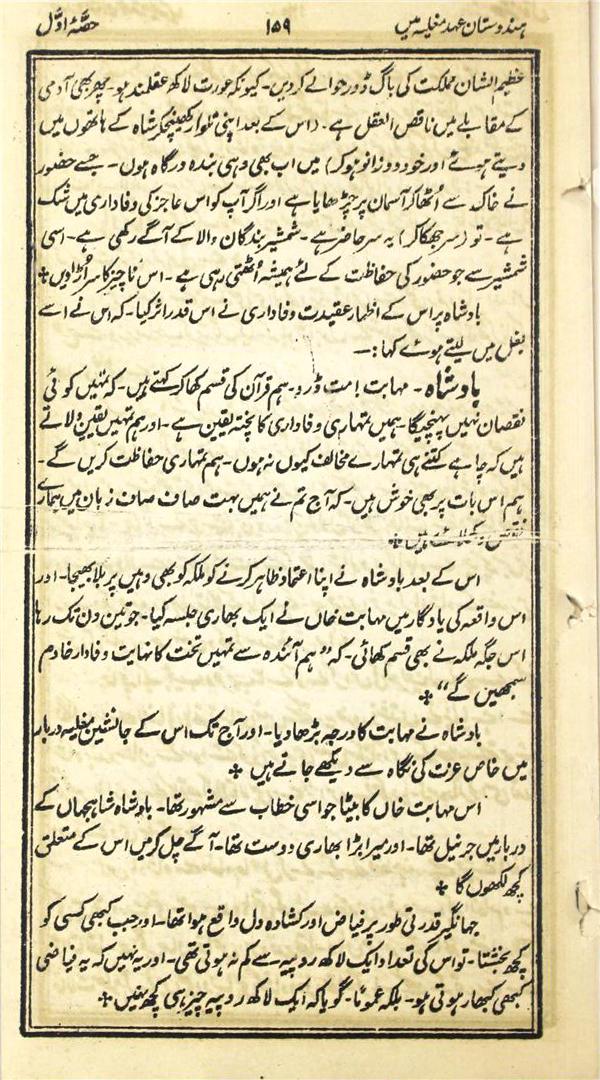 ہندوستان عہد مغلیہ میں ۱۵۹ حصّۂ اوّل
عظیم الشان مملکت کی باگ ڈور حوالے کردیں۔ کیونکہ عورت لاکھ عقلمند ہو۔ پھر بھی آدمی
کے مقابلے میں ناقص العقل ہے۔ (اس کے بعد اپنی تلوار کھینچکر شاہ کے ہاتھوں میں
دیتے ہوئے اور خود دوزانو ہوکر) میں اب بھی وہی بندہ درگاہ ہوں۔ جسے حضور
نے خاک سے اُٹھاکر آسمان پر چڑھایا ہے اور اگر آپ کو اس عاجز کی وفاداری میں شک
ہے۔ تو (سر جھکاکر) یہ سر حاضر ہے۔ شمشیر بندگان والا کے آگے رکھی ہے۔ اسی
شمشیر سے جو حضور کی حفاظت کے لئے ہمیشہ اُٹھتی رہی ہے۔ اس ناچیز کا سر اُڑادیں ⁜
بادشاہ پر اس کے اظہار عقیدت وفاداری نے اس قدر اثر کیا۔ کہ اس نے اسے
بغل میں لیتے ہوئے کہا:—
بادشاہ۔ مہابت! مت ڈرو۔ ہم قرآن کی قسم کھاکر کہتے ہیں۔ کہ تمہیں کوئی
نقصان نہیں پہنچیگا۔ ہمیں تمہاری وفاداری کا پختہ یقین ہے۔ اور ہم تمہیں یقین دلاتے
ہیں کہ چاہے کتنے ہی تمہارے مخالف کیوں نہ ہوں۔ ہم تمہاری حفاظت کریں گے۔
ہم اس بات پر بھی خوش ہیں۔ کہ آج تم نے ہمیں بہت صاف صاف زبان میں ہمارے
نقص ہیں ⁜
اس کے بعد بادشاہ نے اپنا اعتماد ظاہر کرنے کو ملکہ کو بھی وہیں پر بلا بھیجا۔ اور
اس واقعہ کی یادگار میں مہابت خاں نے ایک بھاری جلسہ کیا۔ جو تین دن تک رہا
اس جگہ ملکہ نے بھی قسم کھائی۔ کہ "ہم آئندہ سے تمہیں تخت کا نہایت وفادار خادم
سمجھیں گے" ⁜
بادشاہ نے مہابت کا درجہ بڑھا دیا۔ اور آج تک اس کے جانشین مغلیہ دربار
میں خاص عزت کی نگاہ سے دیکھے جاتے ہیں ⁜
اس مہابت خاں کا بیٹا جو اسی خطاب سے مشہور تھا۔ بادشاہ شاہجہاں کے
دربار میں جرنیل تھا۔ اور میرا بڑا بھاری دوست تھا۔ آگے چل کر میں اس کے متعلق
کچھ لکھوں گا ⁜
جہانگیر قدرتی طور پر فیاض اور کشادہ دل واقع ہوا تھا۔ اور جب کبھی کسی کو
کچھ بخشتا۔ تو اس کی تعداد ایک لاکھ روپیہ سے کم نہ ہوتی تھی۔ اور یہ نہیں کہ یہ فیاضی
کبھی کبھار ہوتی ہو۔ بلکہ عموماً۔ گویا کہ ایک لاکھ روپیہ چیز ہی کچھ نہیں ⁜